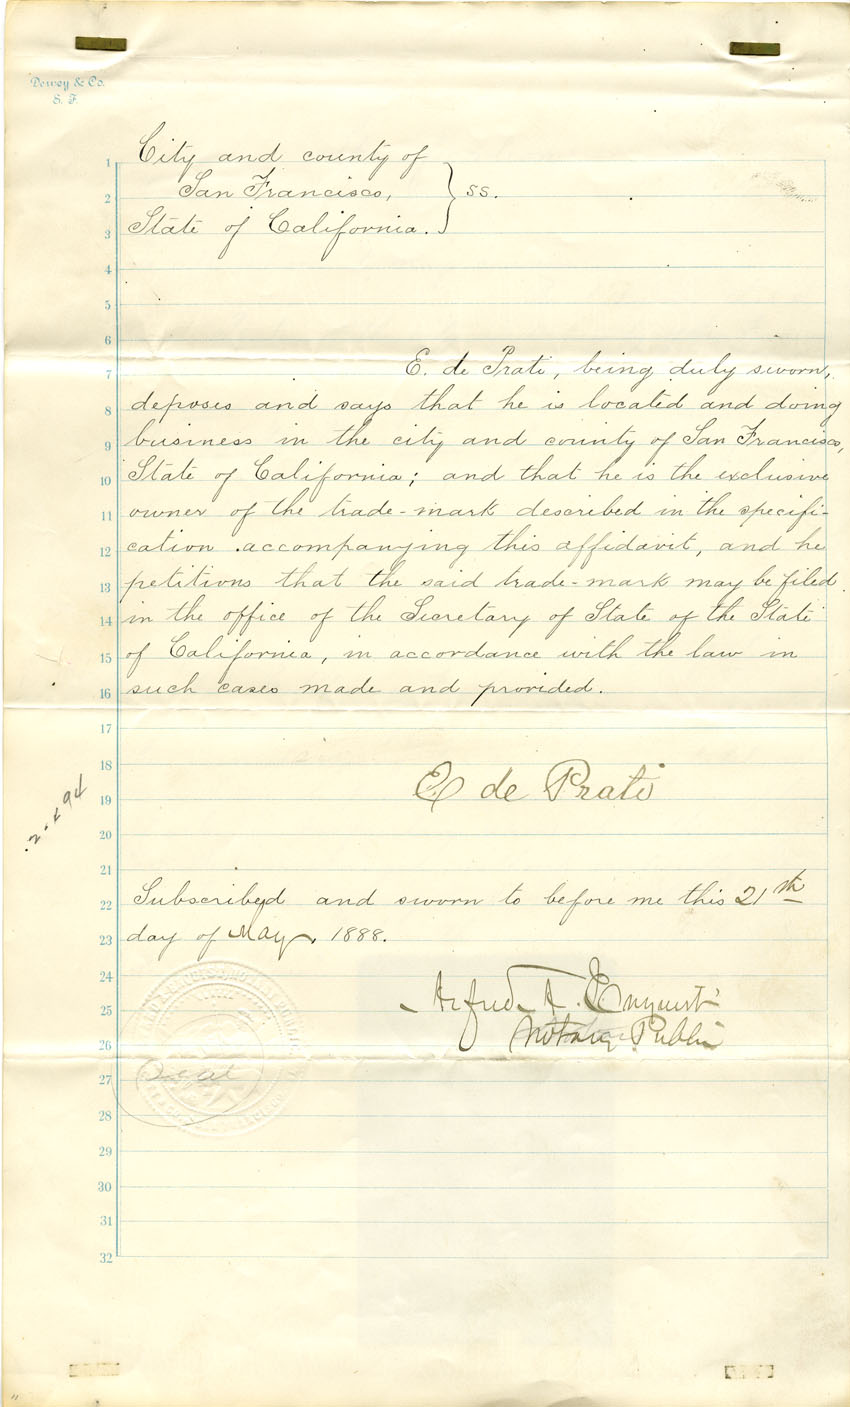 Dewey & Co.
S. F.
City and county of
San Francisco,
State of California.
} ss.
E. de Prati, being duly sworn,
deposes and says that he is located and doing
business in the city and county of San Francisco,
State of California; and that he is the exclusive
owner of the trade-mark described in the specifi-
cation accompanying this affidavit, and he
petitions that the said trade-mark may be filed
in the office of the Secretary of State of the State
of California, in accordance with the law in
such cases made and provided.
E de Prati
Subscribed and sworn to before me this 21th
day of May, 1888.
Alfred A. Enquist
Notary Public
Seal
1
2
3
4
5
6
7
8
9
10
11
12
13
14
15
16
17
18
19
20
21
22
23
24
25
26
27
28
29
30
31
32